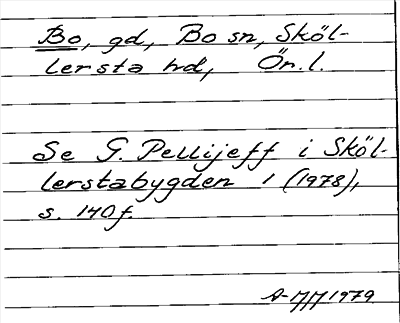 Bo, gd, Bo sn, Sköl-
lersta hd, Ör.l.
Se G. Pellijeff i Sköl-
lerstabygden 1 (1978),
s. 140 f.
1979